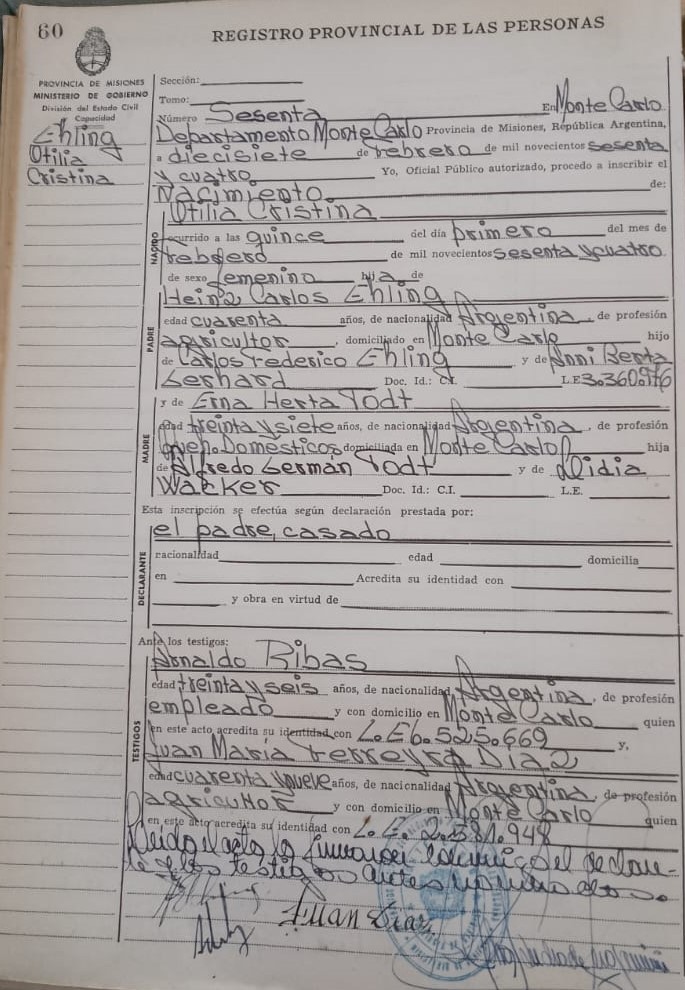 60
REGISTRO PROVINCIAL DE LAS PERSONAS
PROVINCIA DE MISIONES
MINISTERIO DE GOBIERNO
División del Estado Civil
Capacidad
Ehling
Otilia
Cristina
Sección:
Tomo:
Número Sesenta En Monte Carlo
Departamento Monte Carlo Provincia de Misiones, República Argentina,
a diecisiete de febrero de mil novecientos sesenta
y cuatro Yo, Oficial Público autorizado, procedo a inscribir el
Nacimiento de:
Otilia Cristina
NACIDO
ocurrido a las quince del día primero del mes de
febrero de mil novecientos sesenta y cuatro
de sexo femenino hija de
Heinz Carlos Ehling
PADRE
edad cuarenta años, de nacionalidad Argentina, de profesión
agricultor, domiciliado en Monte Carlo hijo
de Carlos Federico Ehling y de Anni Berta
Gerhard Doc. Id.: C.I. L.E. 3.360.976
y de Erna Herta Todt
MADRE
edad treinta y siete años, de nacionalidad Argentina, de profesión
Queh. Domésticos domiciliada en Monte Carlo hija
de Alfredo Germán Todt y de Lidia
Wacker Doc. Id.: C.I. L.E.
Esta inscripción se efectúa según declaración prestada por:
el padre, casado
DECLARANTE
nacionalidad edad domicilia
en Acredita su identidad con
y obra en virtud de
Ante los testigos:
Arnaldo Ribas
TESTIGOS
edad treinta y seis años, de nacionalidad Argentina, de profesión
empleado y con domicilio en Monte Carlo quien
en este acto acredita su identidad con L.E 6.525.669 y,
Juan María Ferreyra Diaz
edad cuarenta y nueve años, de nacionalidad Argentina, de profesión
agricultor y con domicilio en Monte Carlo quien
en este acto acredita su identidad con L.E. 2.581.948
Leído el acta la firman conmigo el declaran-
te y los testigos antes nombrados
Juan Diaz